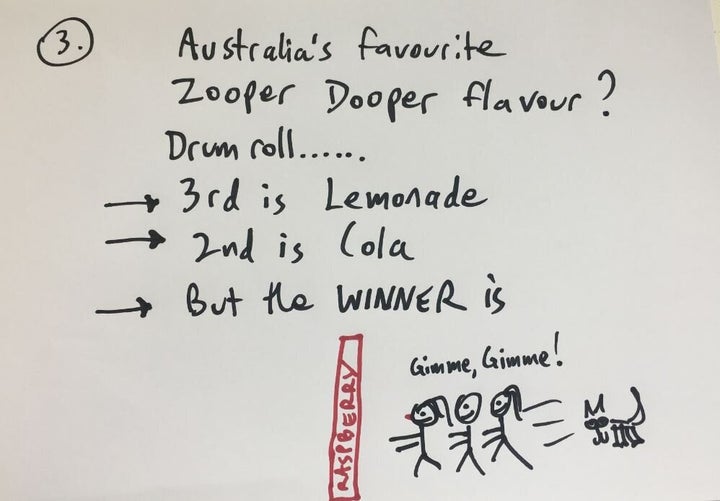 3.
Australia's favourite
Zooper Dooper flavour?
Drum roll......
→ 3rd is Lemonade
→ 2nd is Cola
→ But the WINNER is
Gimme, Gimme!
RASPBERRY